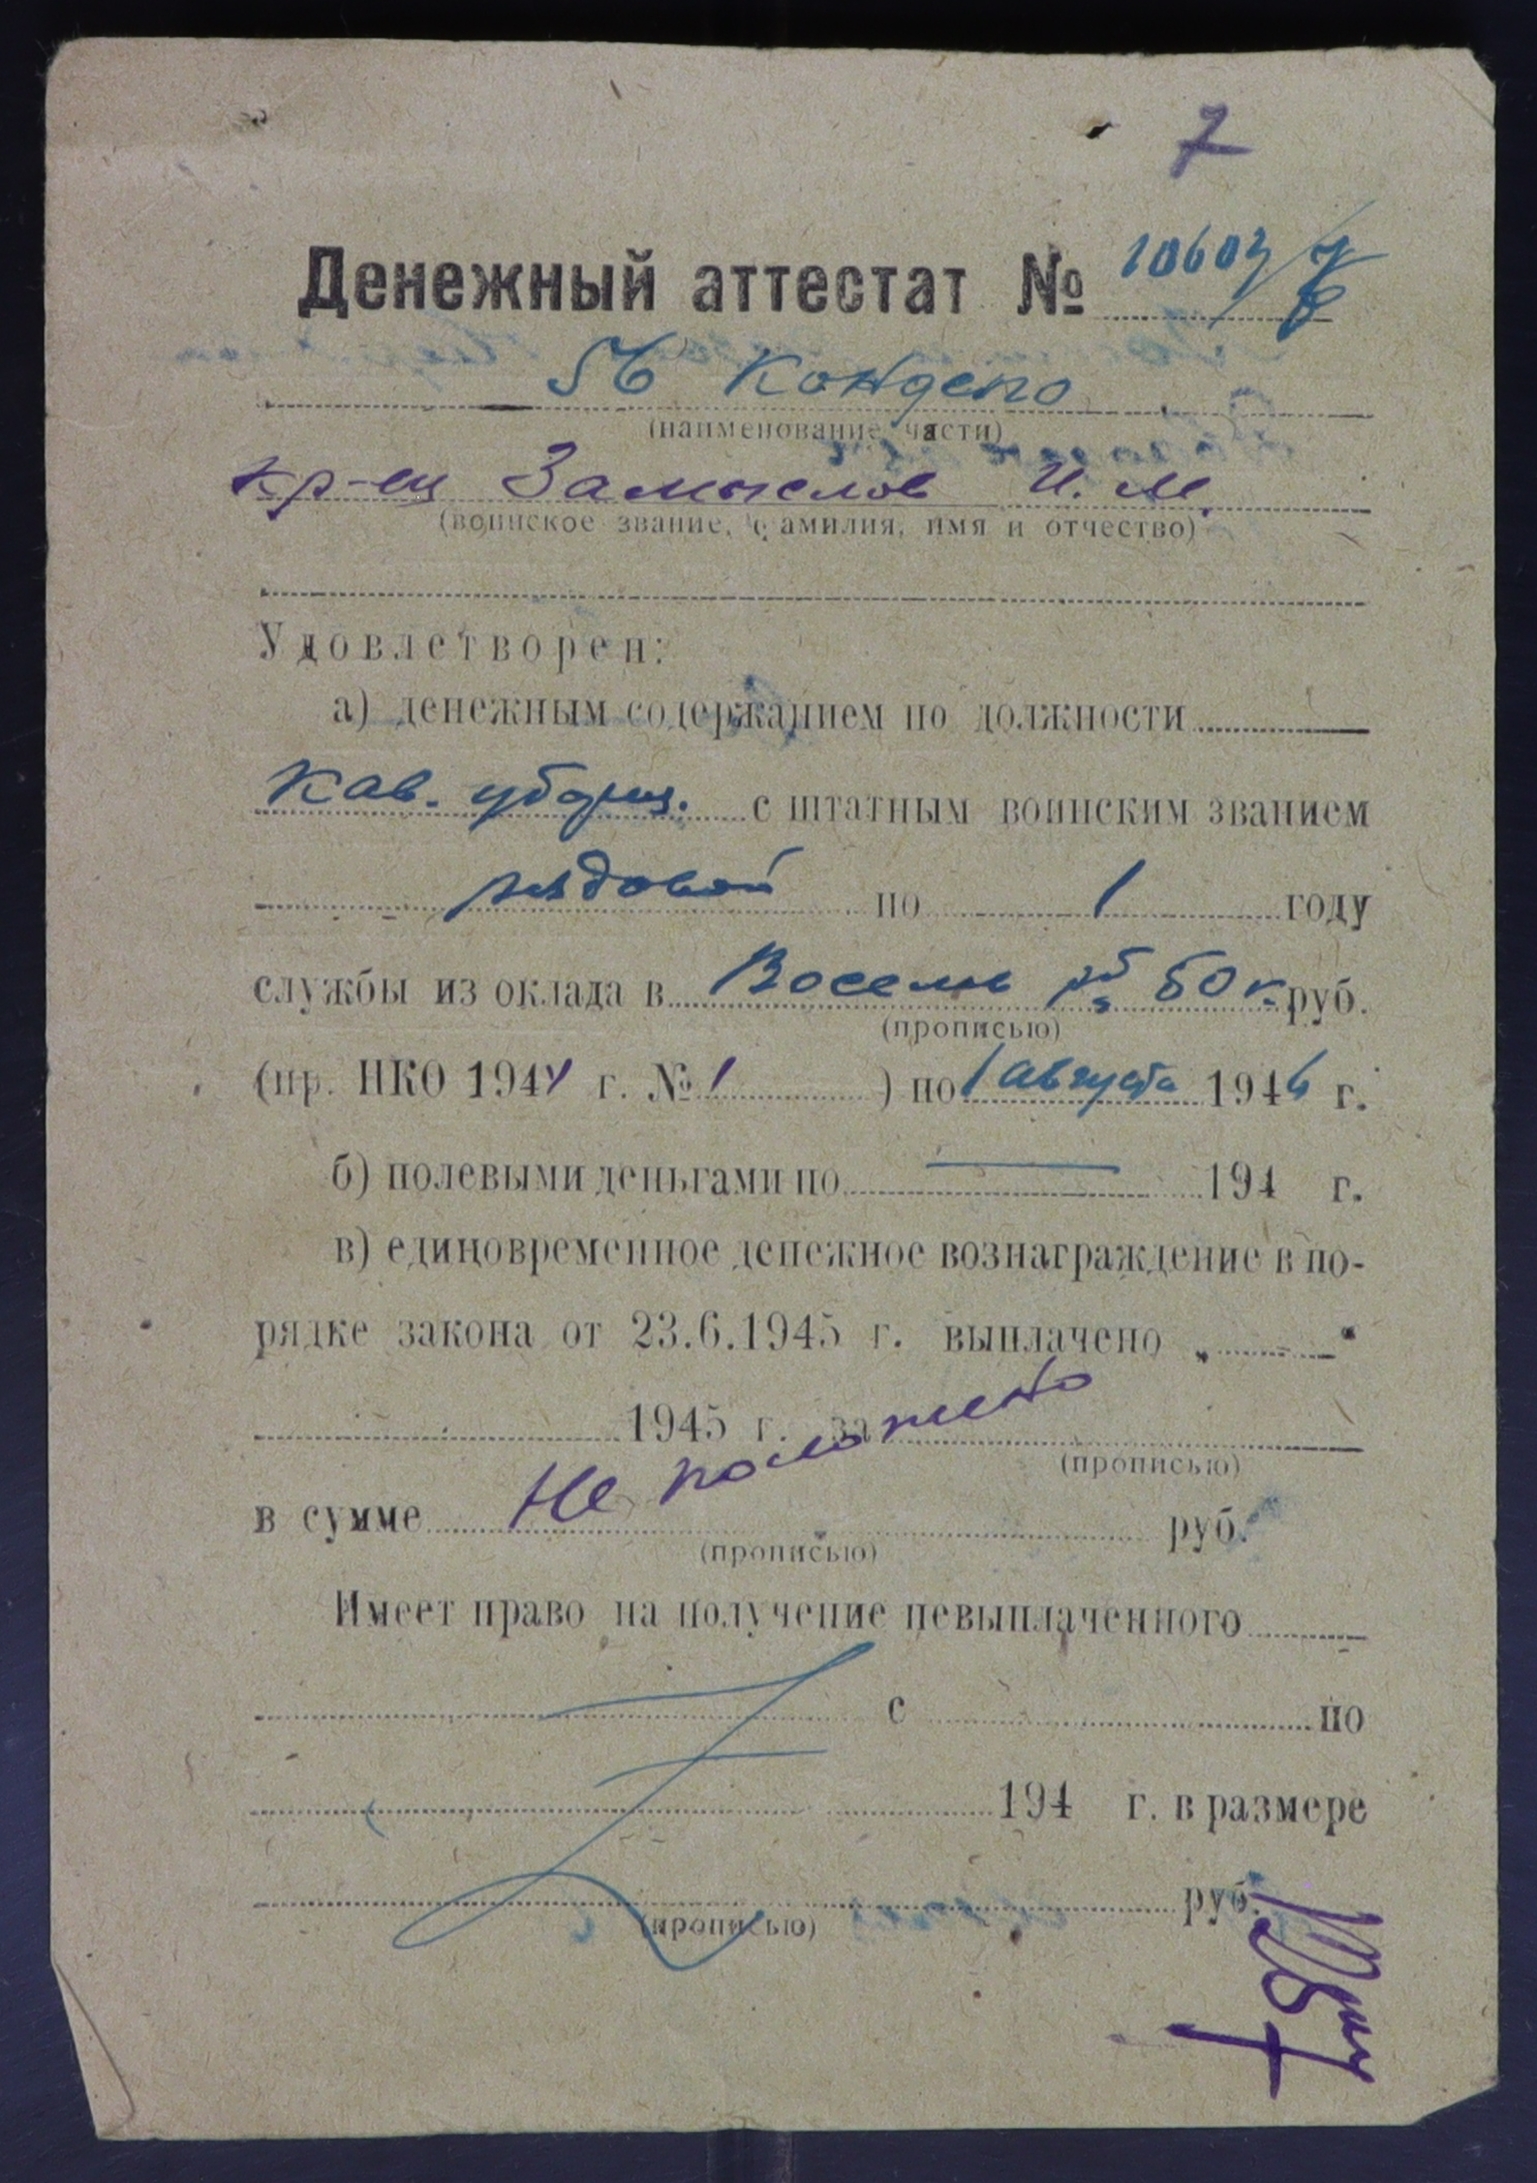 7
Денежный аттестат № 10603/
56 Кондепо
(наименование части)
кр-ец Замыслов И. М.
(воинское звание, фамилия, имя и отчество)
Удовлетворен:
а) денежным содержанием по должности
Кав. уборщ. с штатным воинским званием
рядовой по 1 году
службы из оклада в Восемь рб 50 к. руб.
(прописью)
(пр. НКО 1944 г. № 1 ) по 1 августа 1946 г.
б) полевыми деньгами по — 194 г.
в) единовременное денежное вознаграждение в по-
рядке закона от 23.6.1945 г. выплачено „ “
1945 г. за
(прописью)
в сумме Не положено руб.
(прописью)
Имеет право на получение невыплаченного
с по
194 г. в размере
руб.
(прописью)